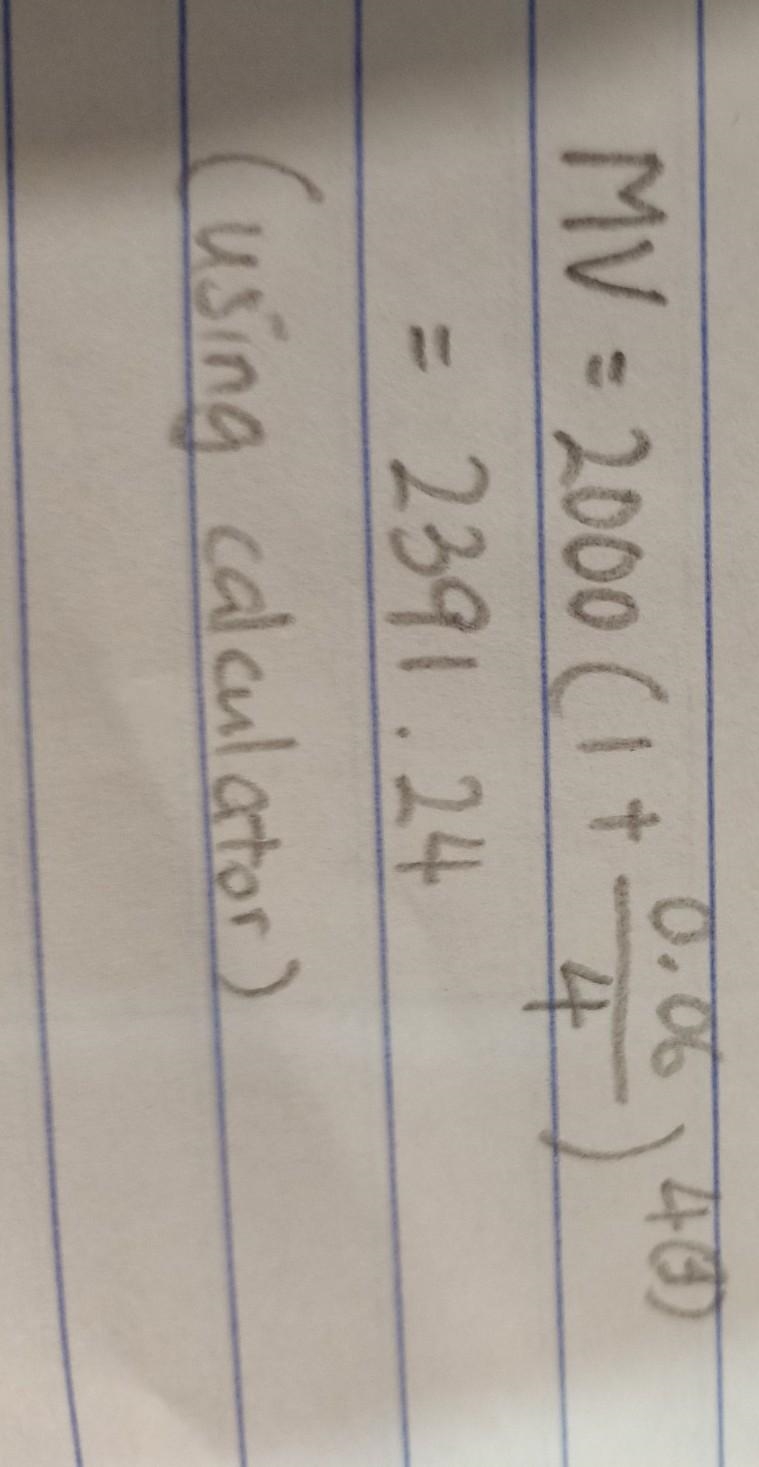 MV = 2000 (1 + 0.06/4)^4(3)
= 2391.24
(using calculator)